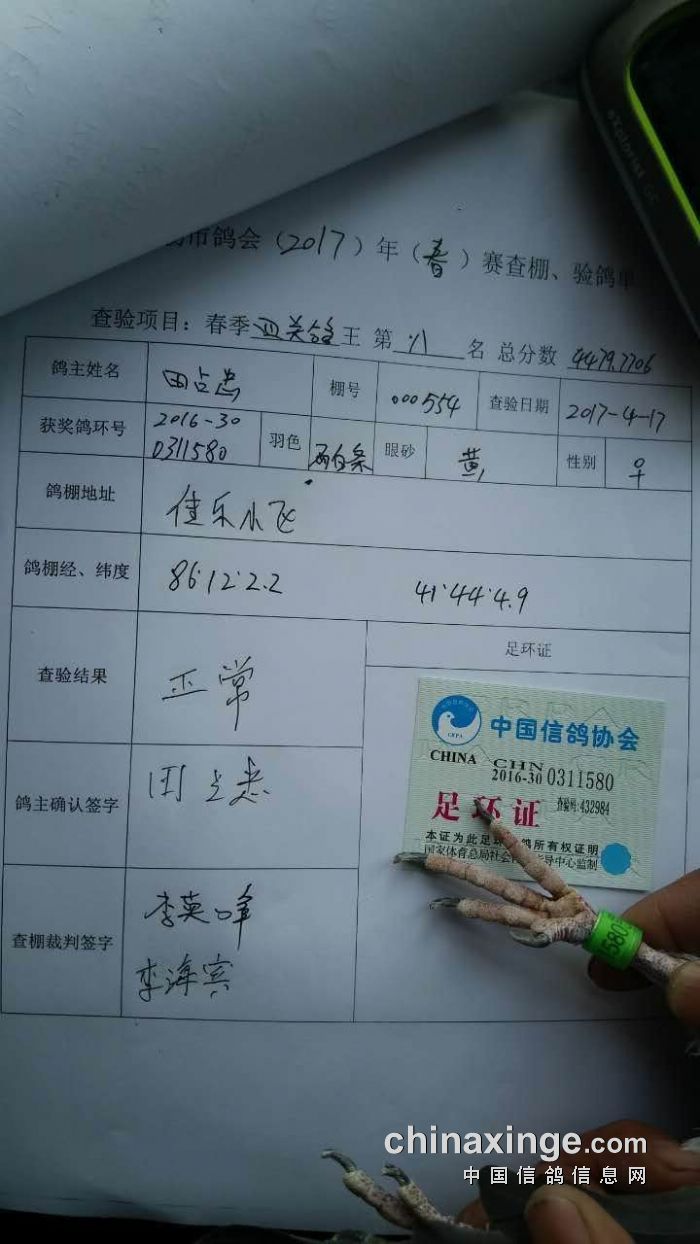 eXplorist GC
市鸽会（2017）年（春）赛查棚、验鸽单
查验项目：春季四关鸽王 第 八 名 总分数 4479.7706
鸽主姓名 田占忠 棚号 000554 查验日期 2017-4-17
获奖鸽环号 2016-30 0311580 羽色 雨白条 眼砂 黄 性别 ♀
鸽棚地址 佳乐小飞
鸽棚经、纬度 86·12·2.2 41·44·4.9
查验结果 正常
足环证
鸽主确认签字 田占忠
查棚裁判签字 李英峰
李海宾
中国信鸽协会
CHINA CHN
2016-30 0311580
足环证 查编号:432984
本证为此足环 鸽所有权证明
国家体育总局社会 指导中心监制
580
chinaxinge.com
中国信鸽信息网